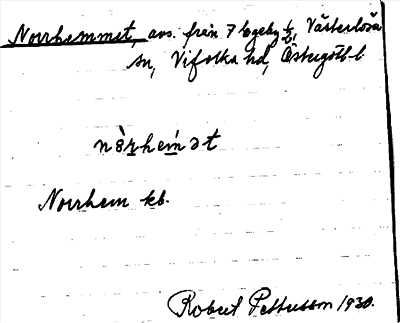 Norrhemmet, avs. från 7 Lageby 1/2, Västerlösa
sn, Vifolka hd, Östergötl. l.
nòr̲hem̲ət
Norrhem kb.
Robert Pettersson 1930.